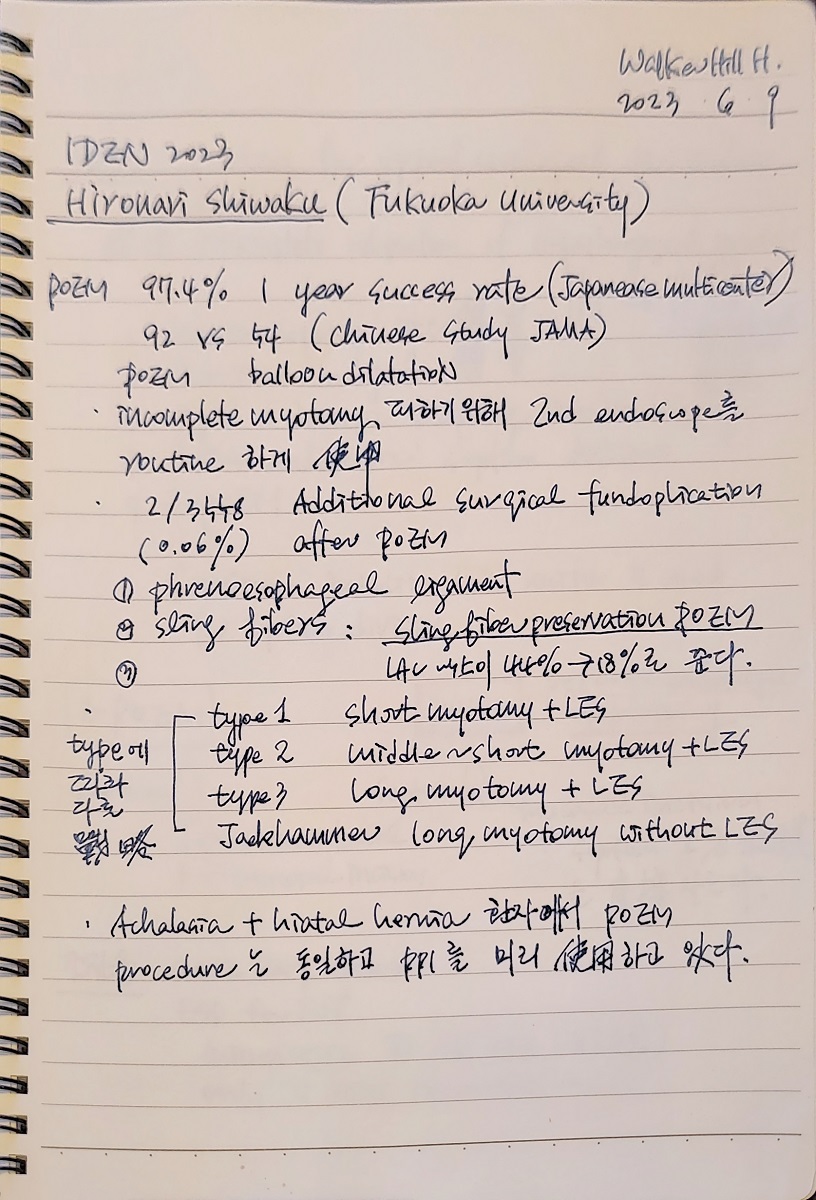 WalkerHill H.
2023 . 6 . 9
IDEN 2023
Hironari Shiwaku (Fukuoka University)
POEM 97.4% 1 year success rate (Japanease multicenter)
92 vs 54 (Chinese study JAMA)
POEM balloon dilatation
· incomplete myotomy 피하기 위해 2nd endoscope를
routine 하게 使用
· 2/3448 Additional surgical fundoplication
(0.06%) after POEM
① phrenoesophageal ligament
② sling fibers : sling fiber preservation POEM
③ 44% → 18%로 준다.
· type 1 short myotomy + LES
type에 type 2 middle ~ short myotomy + LES
따라 type 3 long myotomy + LES
다른 Jackhammer long myotomy without LES
戰略
· Achalasia + hiatal hernia 환자에서 POEM
procedure는 동일하고 PPI를 미리 使用하고 있다.